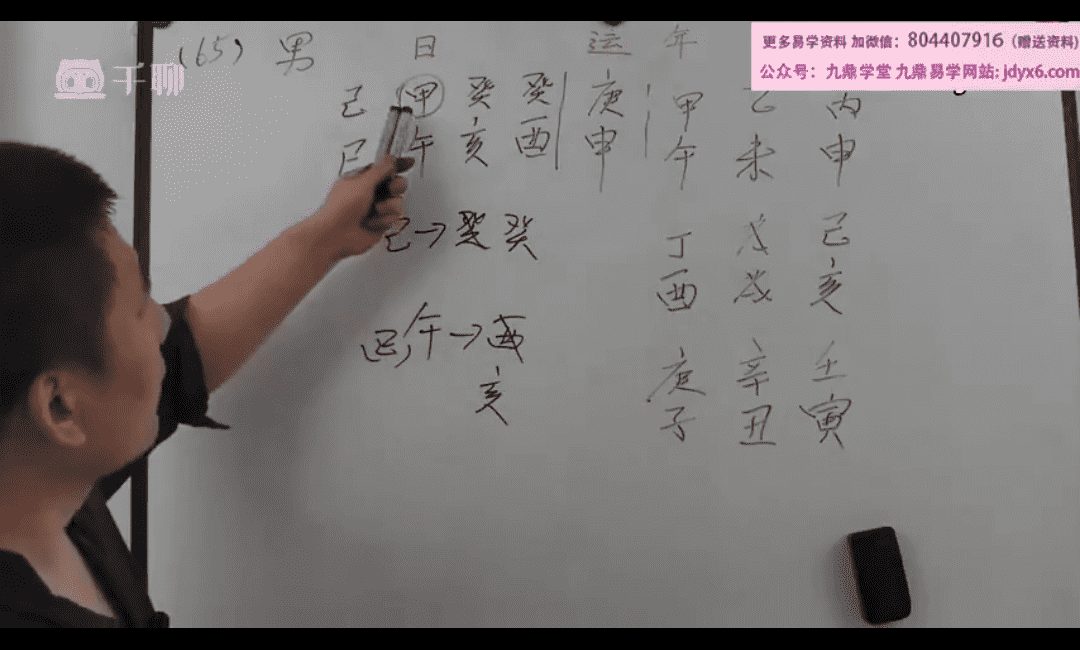 更多易学资料 加微信：804407916（赠送资料)
公众号：九鼎学堂 九鼎易学网站: jdyx6.com
千聊
(65) 男 日 运 年
己 甲 癸 癸 庚 甲 乙 丙
巳 午 亥 酉 申 午 未 申
己→癸 癸
丁 戊 己
酉 戌 亥
巳,午→酉
亥
庚 辛 壬
子 丑 寅